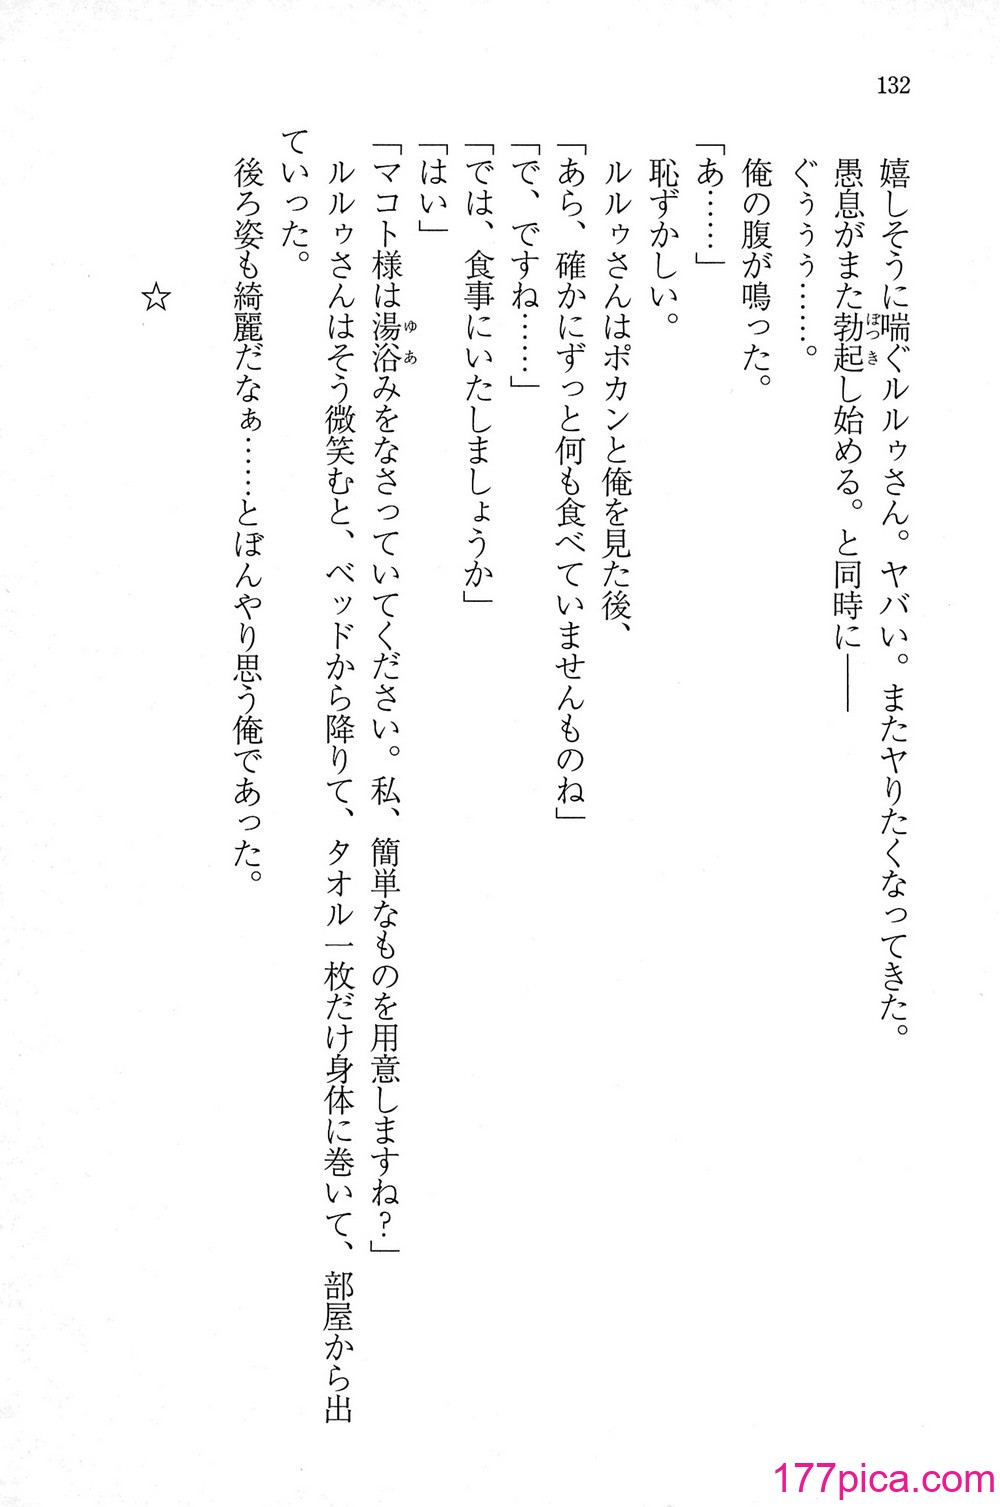 132
嬉しそうに喘ぐルルゥさん。ヤバい。またヤりたくなってきた。
愚息がまた勃起し始める。と同時に――
ぼっき
ぐぅぅぅ……。
俺の腹が鳴った。
「あ……」
恥ずかしい。
ルルゥさんはポカンと俺を見た後、
「あら、確かにずっと何も食べていませんものね」
「で、ですね……」
「では、食事にいたしましょうか」
「はい」
「マコト様は湯浴みをなさっていてください。私、簡単なものを用意しますね？」
ゆあ
ルルゥさんはそう微笑むと、ベッドから降りて、タオル一枚だけ身体に巻いて、部屋から出
ていった。
後ろ姿も綺麗だなぁ……とぼんやり思う俺であった。
☆
177pica.com